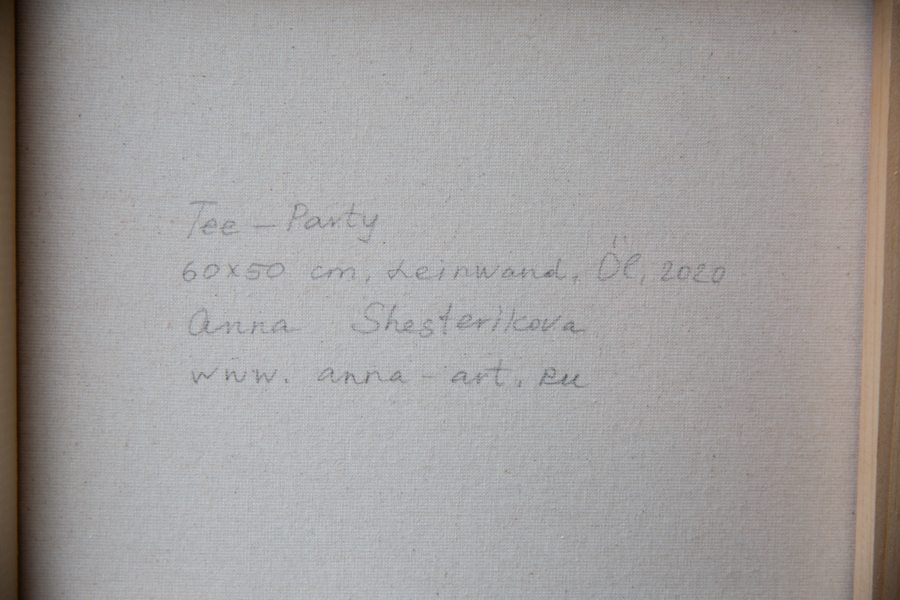 Tee - Party
60x50 cm, Leinwand, Öl, 2020
Anna Shesterikova
www. anna - art. eu